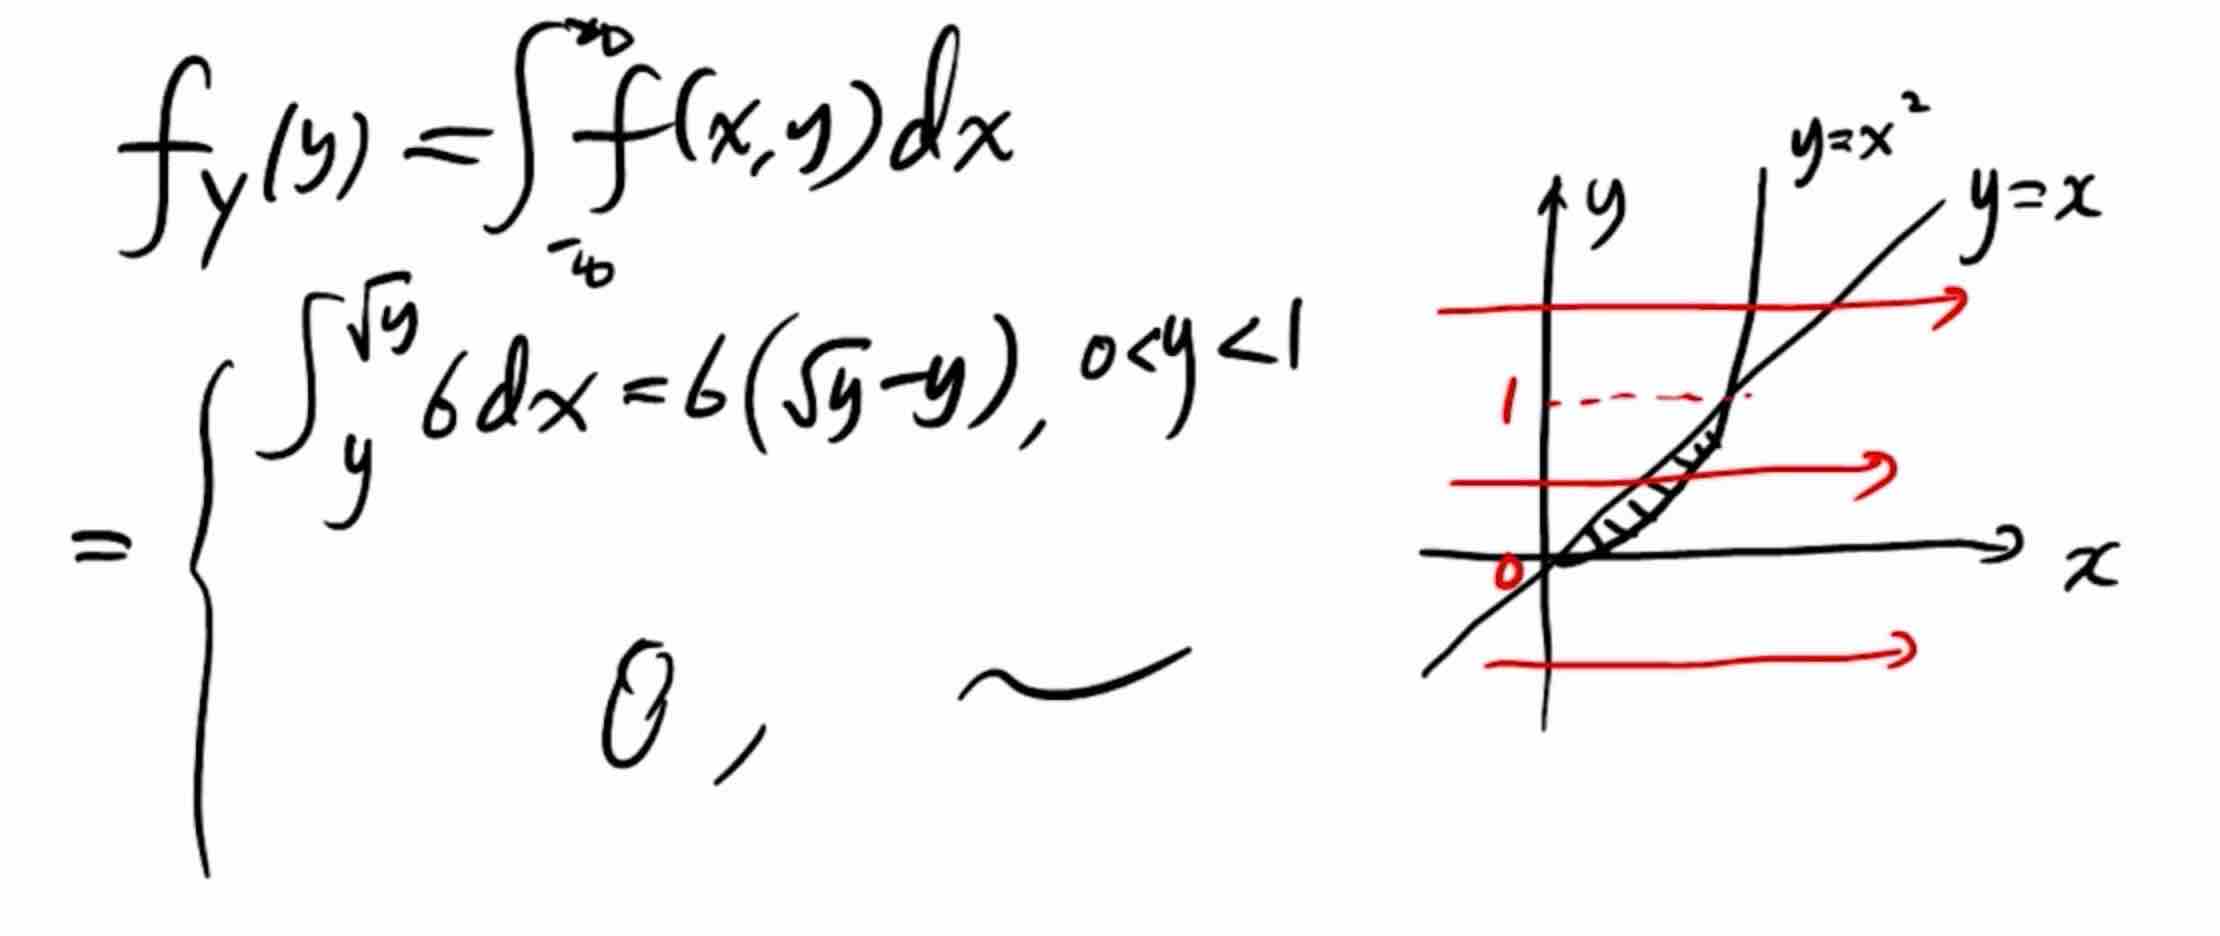 f_Y(y) = ∫_{-∞}^{+∞} f(x,y)dx
= { ∫_y^{√y} 6dx = 6(√y-y), 0<y<1
0, ~
y
y=x²
y=x
1
0
x